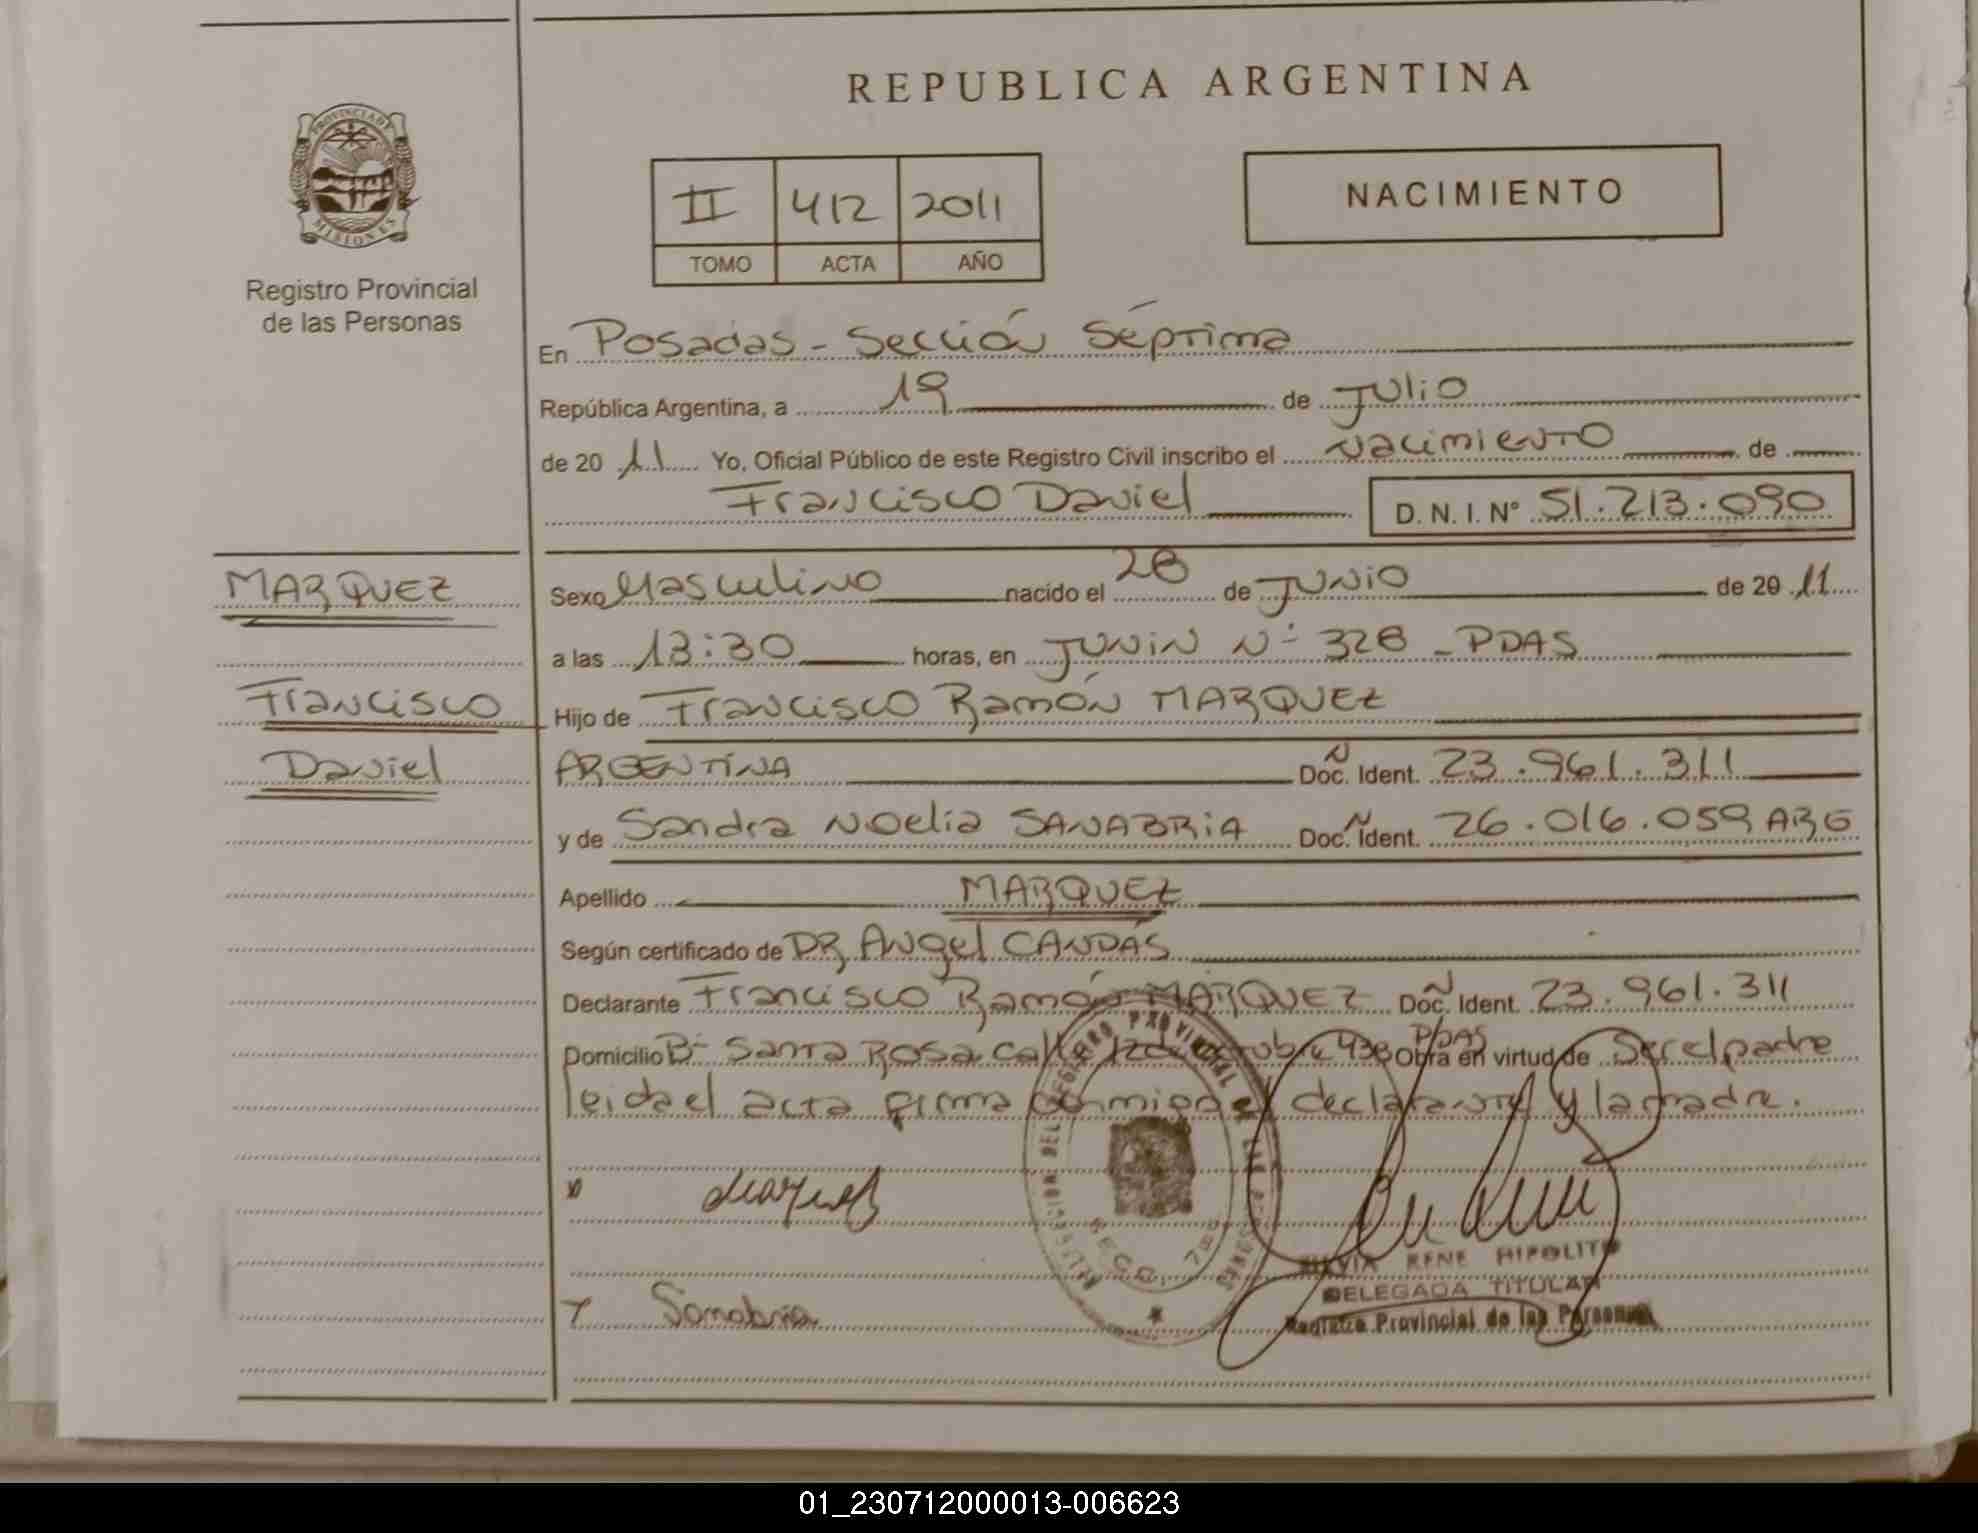 REPUBLICA ARGENTINA
PROVINCIA DE MISIONES
Registro Provincial
de las Personas
II 412 2011
TOMO ACTA AÑO
NACIMIENTO
En Posadas - Sección Séptima
República Argentina, a 19 de Julio
de 20 11 Yo, Oficial Público de este Registro Civil inscribo el Nacimiento de
Francisco Daniel D. N. I. Nº 51.213.090
MARQUEZ
Francisco
Daniel
Sexo Masculino nacido el 28 de Junio de 20 11
a las 13:30 horas, en Junin Nº 328 - PDAS
Hijo de Francisco Ramón MARQUEZ
ARGENTINA Doc. Ident. 23.961.311
y de Sandra Noelia SANABRIA Doc. Ident. 26.016.059 ARG
Apellido MARQUEZ
Según certificado de DR Angel CANDÁS
Declarante Francisco Ramón MARQUEZ Doc. Ident. 23.961.311
Domicilio Bº Santa Rosa calle 12 de octubre 938 PDAS Obra en virtud de Ser el padre
leida el acta firma conmigo el declarante y la madre.
Marquez
Sanabria
DELEGACION DEL REGISTRO PROVINCIAL DE LAS PERSONAS
SECC. 7ma
SILVIA RENE HIPOLITO
DELEGADA TITULAR
Registro Provincial de las Personas
01_230712000013-006623